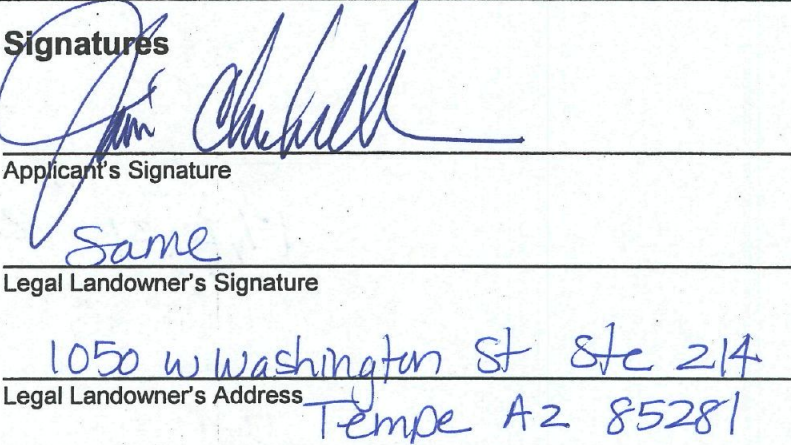 Signatures
Applicant's Signature
Same
Legal Landowner's Signature
1050 W Washington St Ste 214
Legal Landowner's Address
Tempe AZ 85281